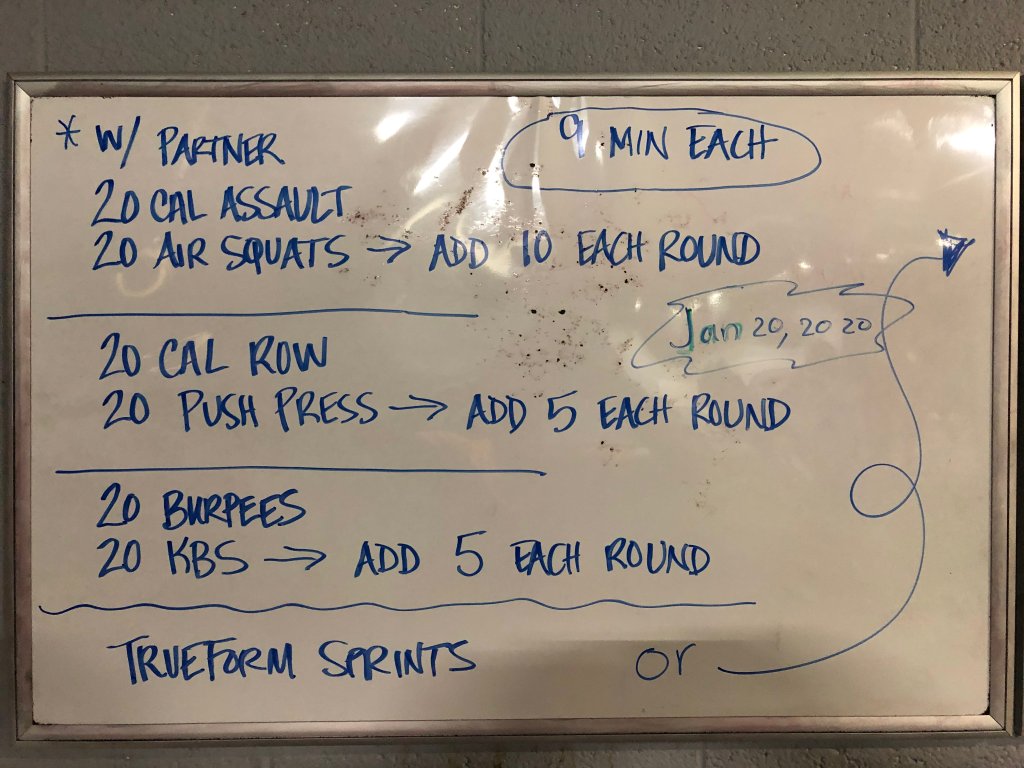 * W/ PARTNER
9 MIN EACH
20 CAL ASSAULT
20 AIR SQUATS → ADD 10 EACH ROUND
Jan 20, 2020
20 CAL ROW
20 PUSH PRESS → ADD 5 EACH ROUND
20 BURPEES
20 KBS → ADD 5 EACH ROUND
TRUEFORM SPRINTS
or